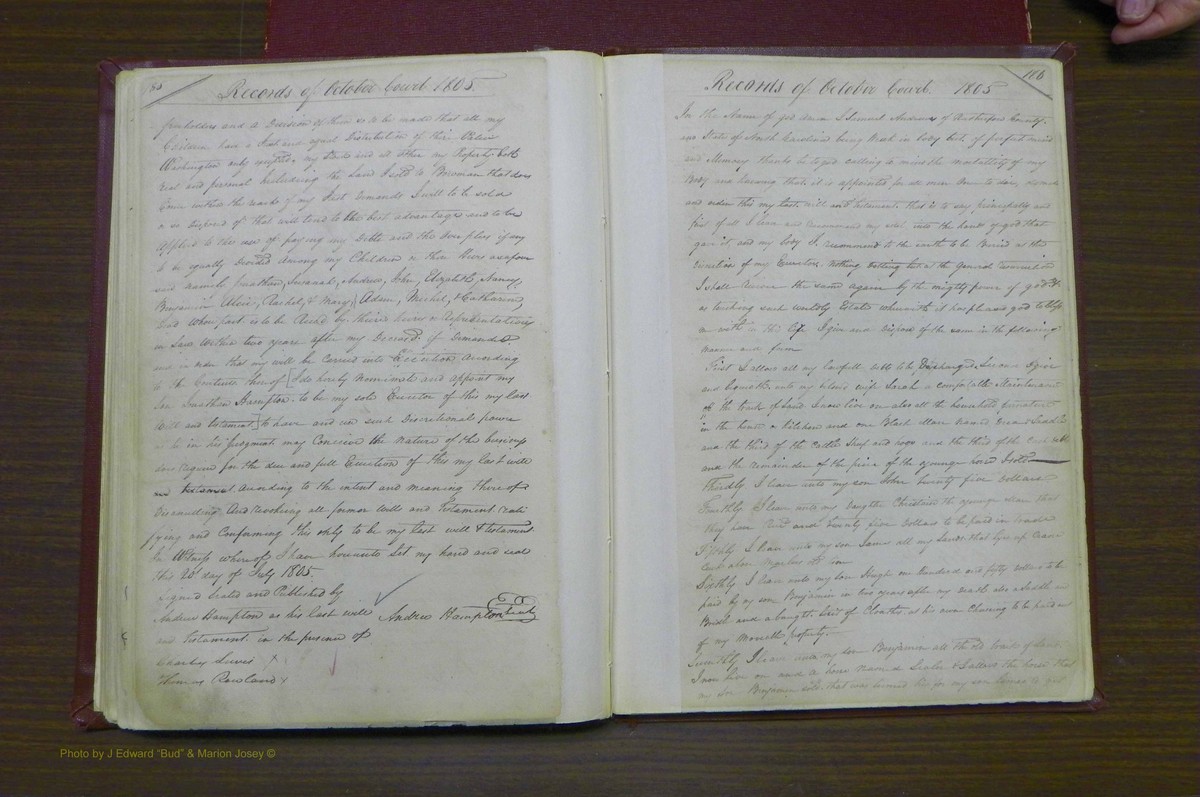 Records of October Court 1805.
freeholders and a Division of them to be made that all my
Children have a Just and equal Distribution of their Value
Washington only excepted, my Stock and all other my Property both
real and personal including the Land I sold to Bowman that does
Come within the reach of my Just Demands I will to be sold
or so disposed of that will tend to the best advantage and to be
applied to the use of paying my Debts and the Overplus if any
to be equally Divided Among my Children or their Heirs as afore
said namely Jonathan, Susanah, Andrew, John, Elizabeth, Nancy,
Benjamin Rachel, & Mary, Adam, Michel, & Catharine,
whom part is to be by their heirs or Representatives
in Law within two years after my Decease if Demanded
and in order that my will be Carried into Execution According
to the Contents thereof I do hereby Nominate and appoint my
Son Jonathan Hampton to be my sole Executor of this my last
Will and testament to have and use such Discretional power
as he in his Judgment may Conceive the Nature of the business
does require for the due and full Execution of this my last will
and testament According to the intent and meaning thereof
Discanulling And revoking all former wills and Testament rati
fying and Confirming this only to be my last will & testament
In Witness whereof I have hereunto Set my hand and seal
this 20th day of July 1805.
Signed Sealed and Published by
Andrew Hampton as his last will Andrew Hampton
and Testament in the presence of
Charles Lewis X
Thomas Rowland X
106
Records of October Court. 1805
In the Name of god Amen I Samuel Andrews of Rutherford County
and State of North Carolina being Weak in body but of perfect mind
and Memory thanks be to god calling to mind the mortallity of my
Body and knowing that it is appointed for all men Once to die,
and ordain this my last will and testament that is to say principally and
first of all I leave and recommend my soul into the hands of god that
gave it, and my body I recommend to the earth to be Buried at the
Discretion of my Executors. nothing but at the general
I shall Receive the same again by the mighty power of god &
as touching such worldly Estate wherewith it has pleased god to bless
me with in this life I give and Dispose of the same in the following
manner and form
First I allow all my lawfull debts to be Discharged
and bequeath unto my beloved wife Sarah a comfortable Maintenance
of the track of land I now live on also all the household furniture
in the house & kitchen and one Black Mare named Saddle
and the third of the Cattle and hogs and the third of the
and the remainder of the price of the younger horse I sold
Thirdly I leave unto my son John twenty five Dollars
Fourthly I leave unto my Daughter Christian the younger than that
they have and twenty five Dollars to be paid in trade
Fifthly I leave unto my son James all my Lands that lyes up
Sixthly I leave unto my son Hugh one hundred and fifty Dollars to be
paid by my son Benjamin in two years after my death also a Saddle and
Bridle and a Suit of Cloaths at his own Chusing to be paid out
of my Moveable property.
I leave unto my son Benjamin all the old tract of land
I now live on and a horse named & I allow the horse that
my Son Benjamin sold that was for my son James to
Photo by J Edward "Bud" & Marion Josey ©